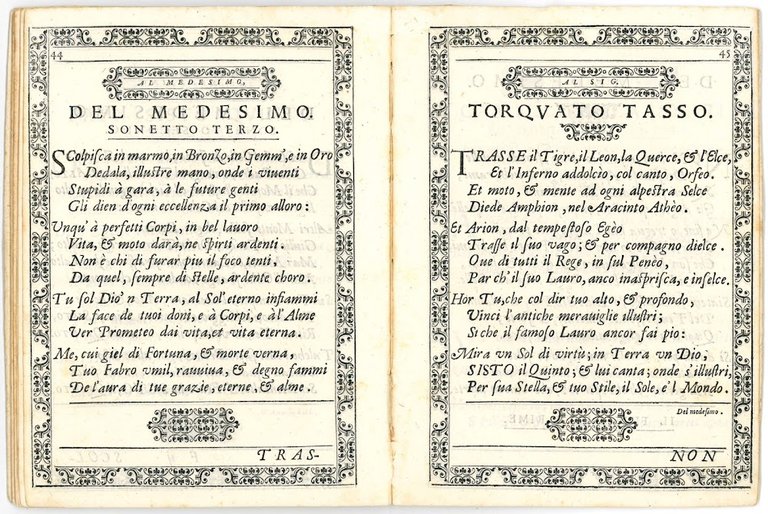 44
AL MEDESIMO,
DEL MEDESIMO.
SONETTO TERZO.
SColpiſca in marmo, in Bronzo, in Gemm', e in Oro
Dedala, illuſtre mano, onde i viuenti
Stupidi à gara, à le future genti
Gli dien d'ogni eccellenza il primo alloro:
Unqu' à perfetti Corpi, in bel lauoro
Vita, & moto darà, ne ſpirti ardenti.
Non è chi di furar piu il foco tenti,
Da quel, ſempre di ſtelle, ardente choro.
Tu ſol Dio 'n Terra, al Sol' eterno infiammi
La face de tuoi doni, e à Corpi, e à l'Alme
Ver Prometeo dai vita, et vita eterna.
Me, cui giel di Fortuna, & morte verna,
Tuo Fabro vmil, rauuiua, & degno fammi
De l'aura di tue grazie, eterne, & alme.
TRAS-
45
AL SIG.
TORQVATO TASSO.
TRASSE il Tigre, il Leon, la Querce, & l'Elce,
Et l'Inferno addolcìo, col canto, Orfeo.
Et moto, & mente ad ogni alpeſtra Selce
Diede Amphion, nel Aracinto Athèo.
Et Arion, dal tempeſtoſo Egèo
Traſſe il ſuo vago; & per compagno dielce.
Oue di tutti il Rege, in ſul Penèo,
Par ch'il ſuo Lauro, anco inaſpriſca, e inſelce.
Hor Tu, che col dir tuo alto, & profondo,
Vinci l'antiche merauiglie illuſtri;
Si che il famoſo Lauro ancor fai pio:
Mira vn Sol di virtù; in Terra vn Dio;
SISTO il Quinto; & lui canta; onde s'illuſtri,
Per ſua Stella, & tuo Stile, il Sole, e'l Mondo.
Del medeſimo.
NON